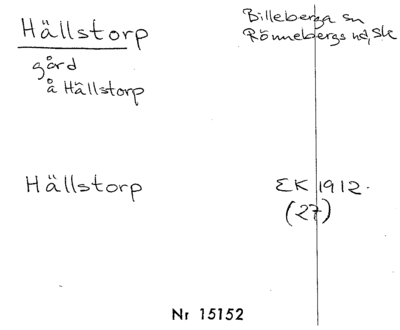 Hällstorp
Billeberga sn
Rönnebergs hd, Sk
gård
å Hällstorp
Hällstorp
EK 1912.
(27)
Nr 15152